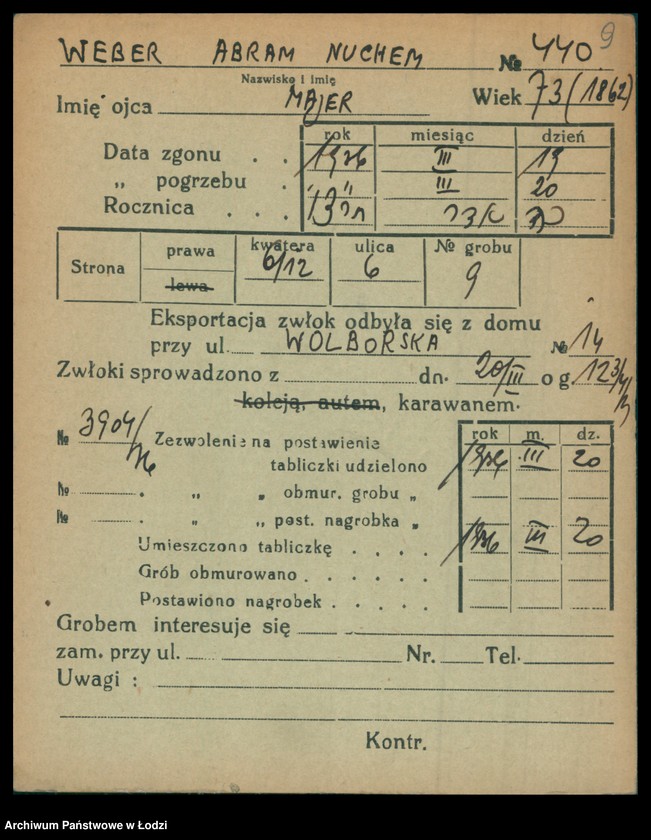 WEBER ABRAM NUCHEM № 440 9
Nazwisko i imię
Imię ojca MAJER Wiek 73 (1862)
rok miesiąc dzień
Data zgonu . . 1936 III 19
„ pogrzebu . „ „ III 20
Rocznica . . .
Strona prawa lewa kwatera 6/12 ulica 6 № grobu 9
Eksportacja zwłok odbyła się z domu
przy ul. WOLBORSKA № 14
Zwłoki sprowadzono z dn. 20/III o g. 12 3/4
koleją, autem, karawanem.
rok m. dz.
№ 3904/36 Zezwolenie na postawienie
tabliczki udzielono 1936 III 20
№ . „ „ obmur. grobu „
№ . „ „ post. nagrobka „
Umieszczono tabliczkę . . . . 1936 III 20
Grób obmurowano . . . . . .
Postawiono nagrobek . . . . .
Grobem interesuje się
zam. przy ul. Nr. Tel.
Uwagi :
Kontr.
Archiwum Państwowe w Łodzi